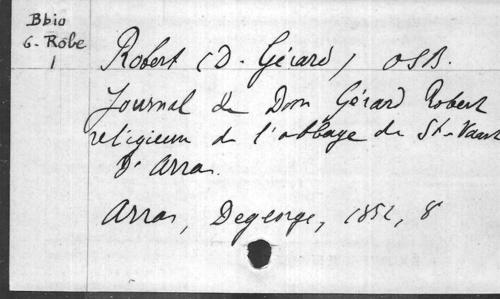 Bbio
G. Robe
1
Robert (D. Gérard) OSB.
Journal de Dom Gérard Robert
religieux de l'abbaye de St-Vaast
d'Arras.
Arras, Degeorge, 1852, 8°